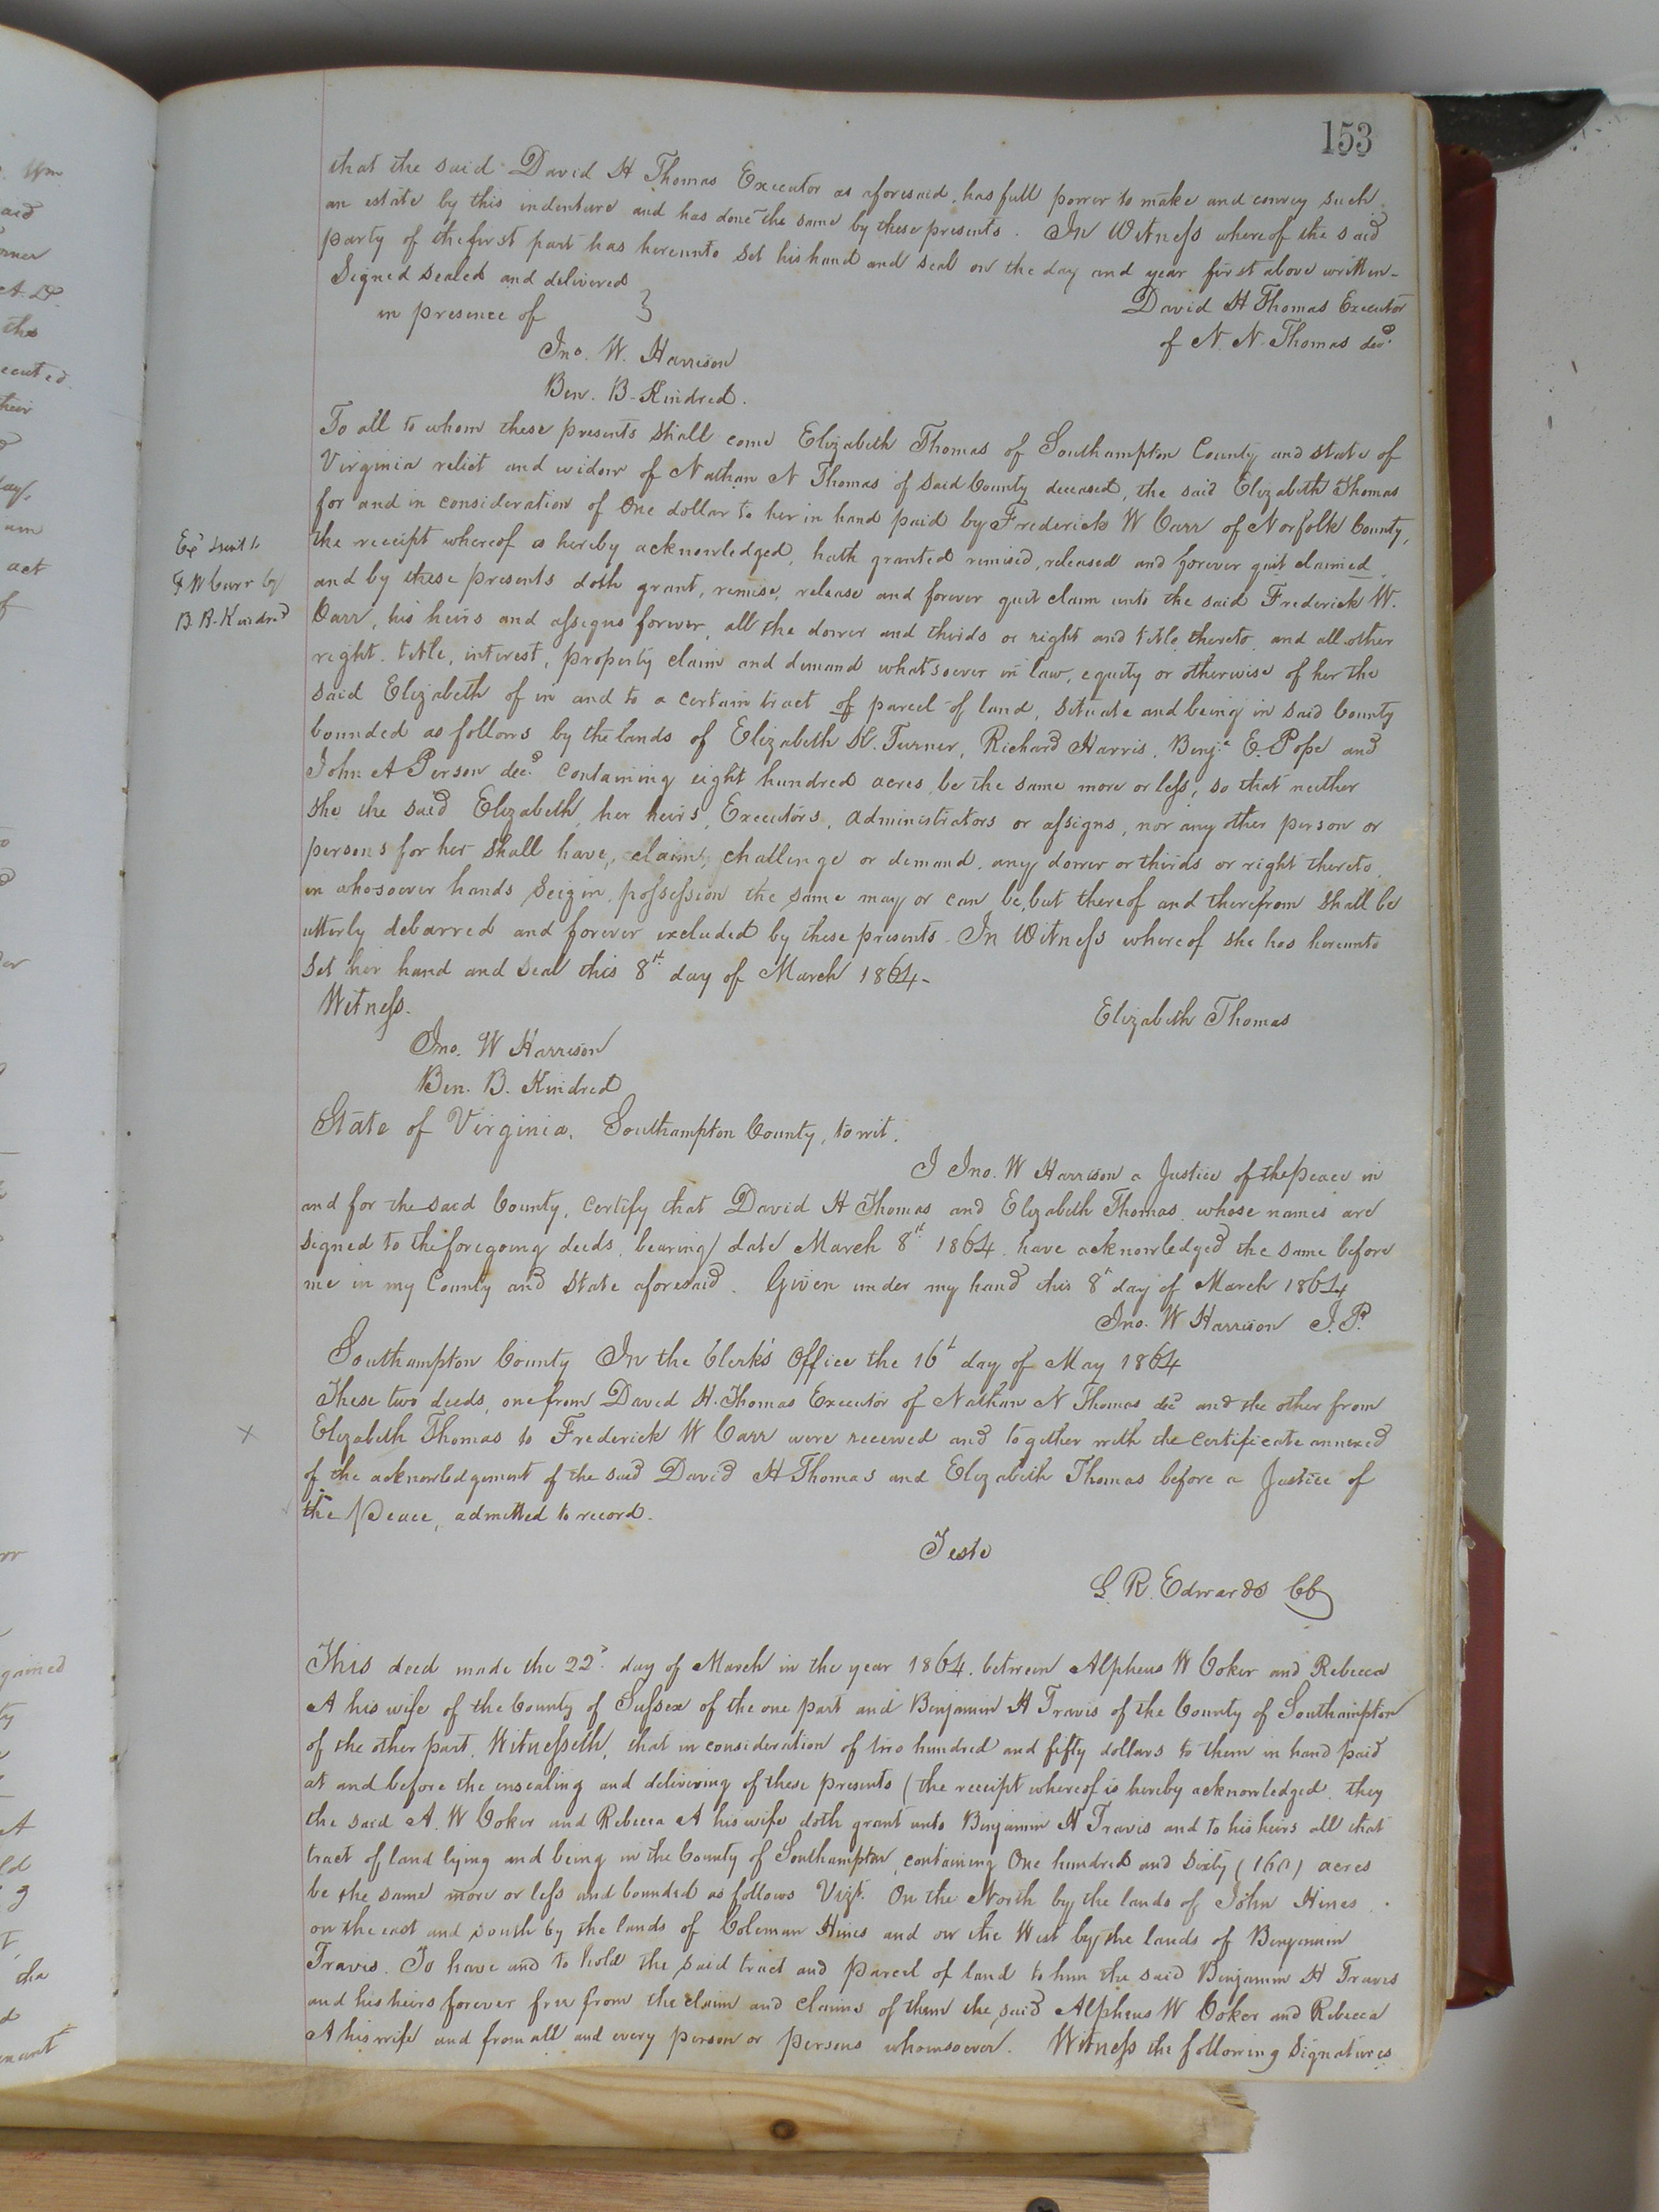 153
that the said David H Thomas Executor as aforesaid, has full power to make and convey such
an estate by this indenture and has done the same by these presents. In Witness whereof the said
party of the first part has hereunto set his hand and seal on the day and year first above written-
Signed sealed and delivered
in presence of
David H Thomas Executor
of N. N. Thomas decd.
Jno. W. Harrison
Ben. B. Kindred.
To all to whom these presents shall come Elizabeth Thomas of Southampton County and state of
Virginia relict and widow of Nathan N Thomas of said County deceased, the said Elizabeth Thomas
for and in consideration of One dollar to her in hand paid by Frederick W Carr of Norfolk County,
the receipt whereof is hereby acknowledged, hath granted remised, released and forever quit claimed,
and by these presents doth grant, remise, release and forever quit claim unto the said Frederick W.
Carr, his heirs and assigns forever, all the dower and thirds or right and title thereto, and all other
right. title, interest, property claim and demand whatsoever in law, equity or otherwise of her the
said Elizabeth of in and to a certain tract of parcel of land, situate and being in said County
bounded as follows by the lands of Elizabeth K. Turner, Richard Harris, Benja E. Pope and
John A Person decd. containing eight hundred acres, be the same more or less; so that neither
she the said Elizabeth, her heirs, Executors, administrators or assigns, nor any other person or
persons for her shall have, claim, challenge or demand, any dower or thirds or right thereto,
in whosoever hands seizin, possession the same may or can be, but thereof and therefrom shall be
utterly debarred and forever excluded by these presents. In Witness whereof she has hereunto
set her hand and seal this 8th day of March 1864-
Exd & sent to
F W Carr by
B. B. Kindred
Witness.
Elizabeth Thomas
Jno. W Harrison
Ben. B. Kindred
State of Virginia, Southampton County, to wit.
I Jno. W Harrison a Justice of the Peace in
and for the said County, certify that David H Thomas and Elizabeth Thomas, whose names are
signed to the foregoing deeds, bearing date March 8th 1864, have acknowledged the same before
me in my County and State aforesaid. Given under my hand this 8th day of March 1864
Jno. W Harrison J.P.
Southampton County In the Clerk's Office the 16t day of May 1864
These two deeds, one from David H. Thomas Executor of Nathan N Thomas decd and the other from
Elizabeth Thomas to Frederick W Carr were received and together with the certificate annexed
of the acknowledgement of the said David H Thomas and Elizabeth Thomas before a Justice of
the Peace, admitted to record.
Teste
L. R. Edwards CC
This deed made the 22d. day of March in the year 1864. between Alpheus W Coker and Rebecca
A his wife of the County of Sussex of the one part and Benjamin H Travis of the County of Southampton
of the other part. Witnesseth, that in consideration of two hundred and fifty dollars to them in hand paid
at and before the ensealing and delivering of these presents (the receipt whereof is hereby acknowledged, they
the said A. W Coker and Rebecca A his wife doth grant unto Benjamin H Travis and to his heirs all that
tract of land lying and being in the County of Southampton, containing One hundred and Sixty (160) acres
be the same more or less and bounded as follows Vizt. On the North by the lands of John Hines
on the east and south by the lands of Coleman Hines and on the West by the lands of Benjamin
Travis. To have and to hold the said tract and parcel of land to him the said Benjamin H Travis
and his heirs forever free from the claim and claims of them the said Alpheus W Coker and Rebecca
A his wife and from all and every person or persons whomsoever. Witness the following signatures